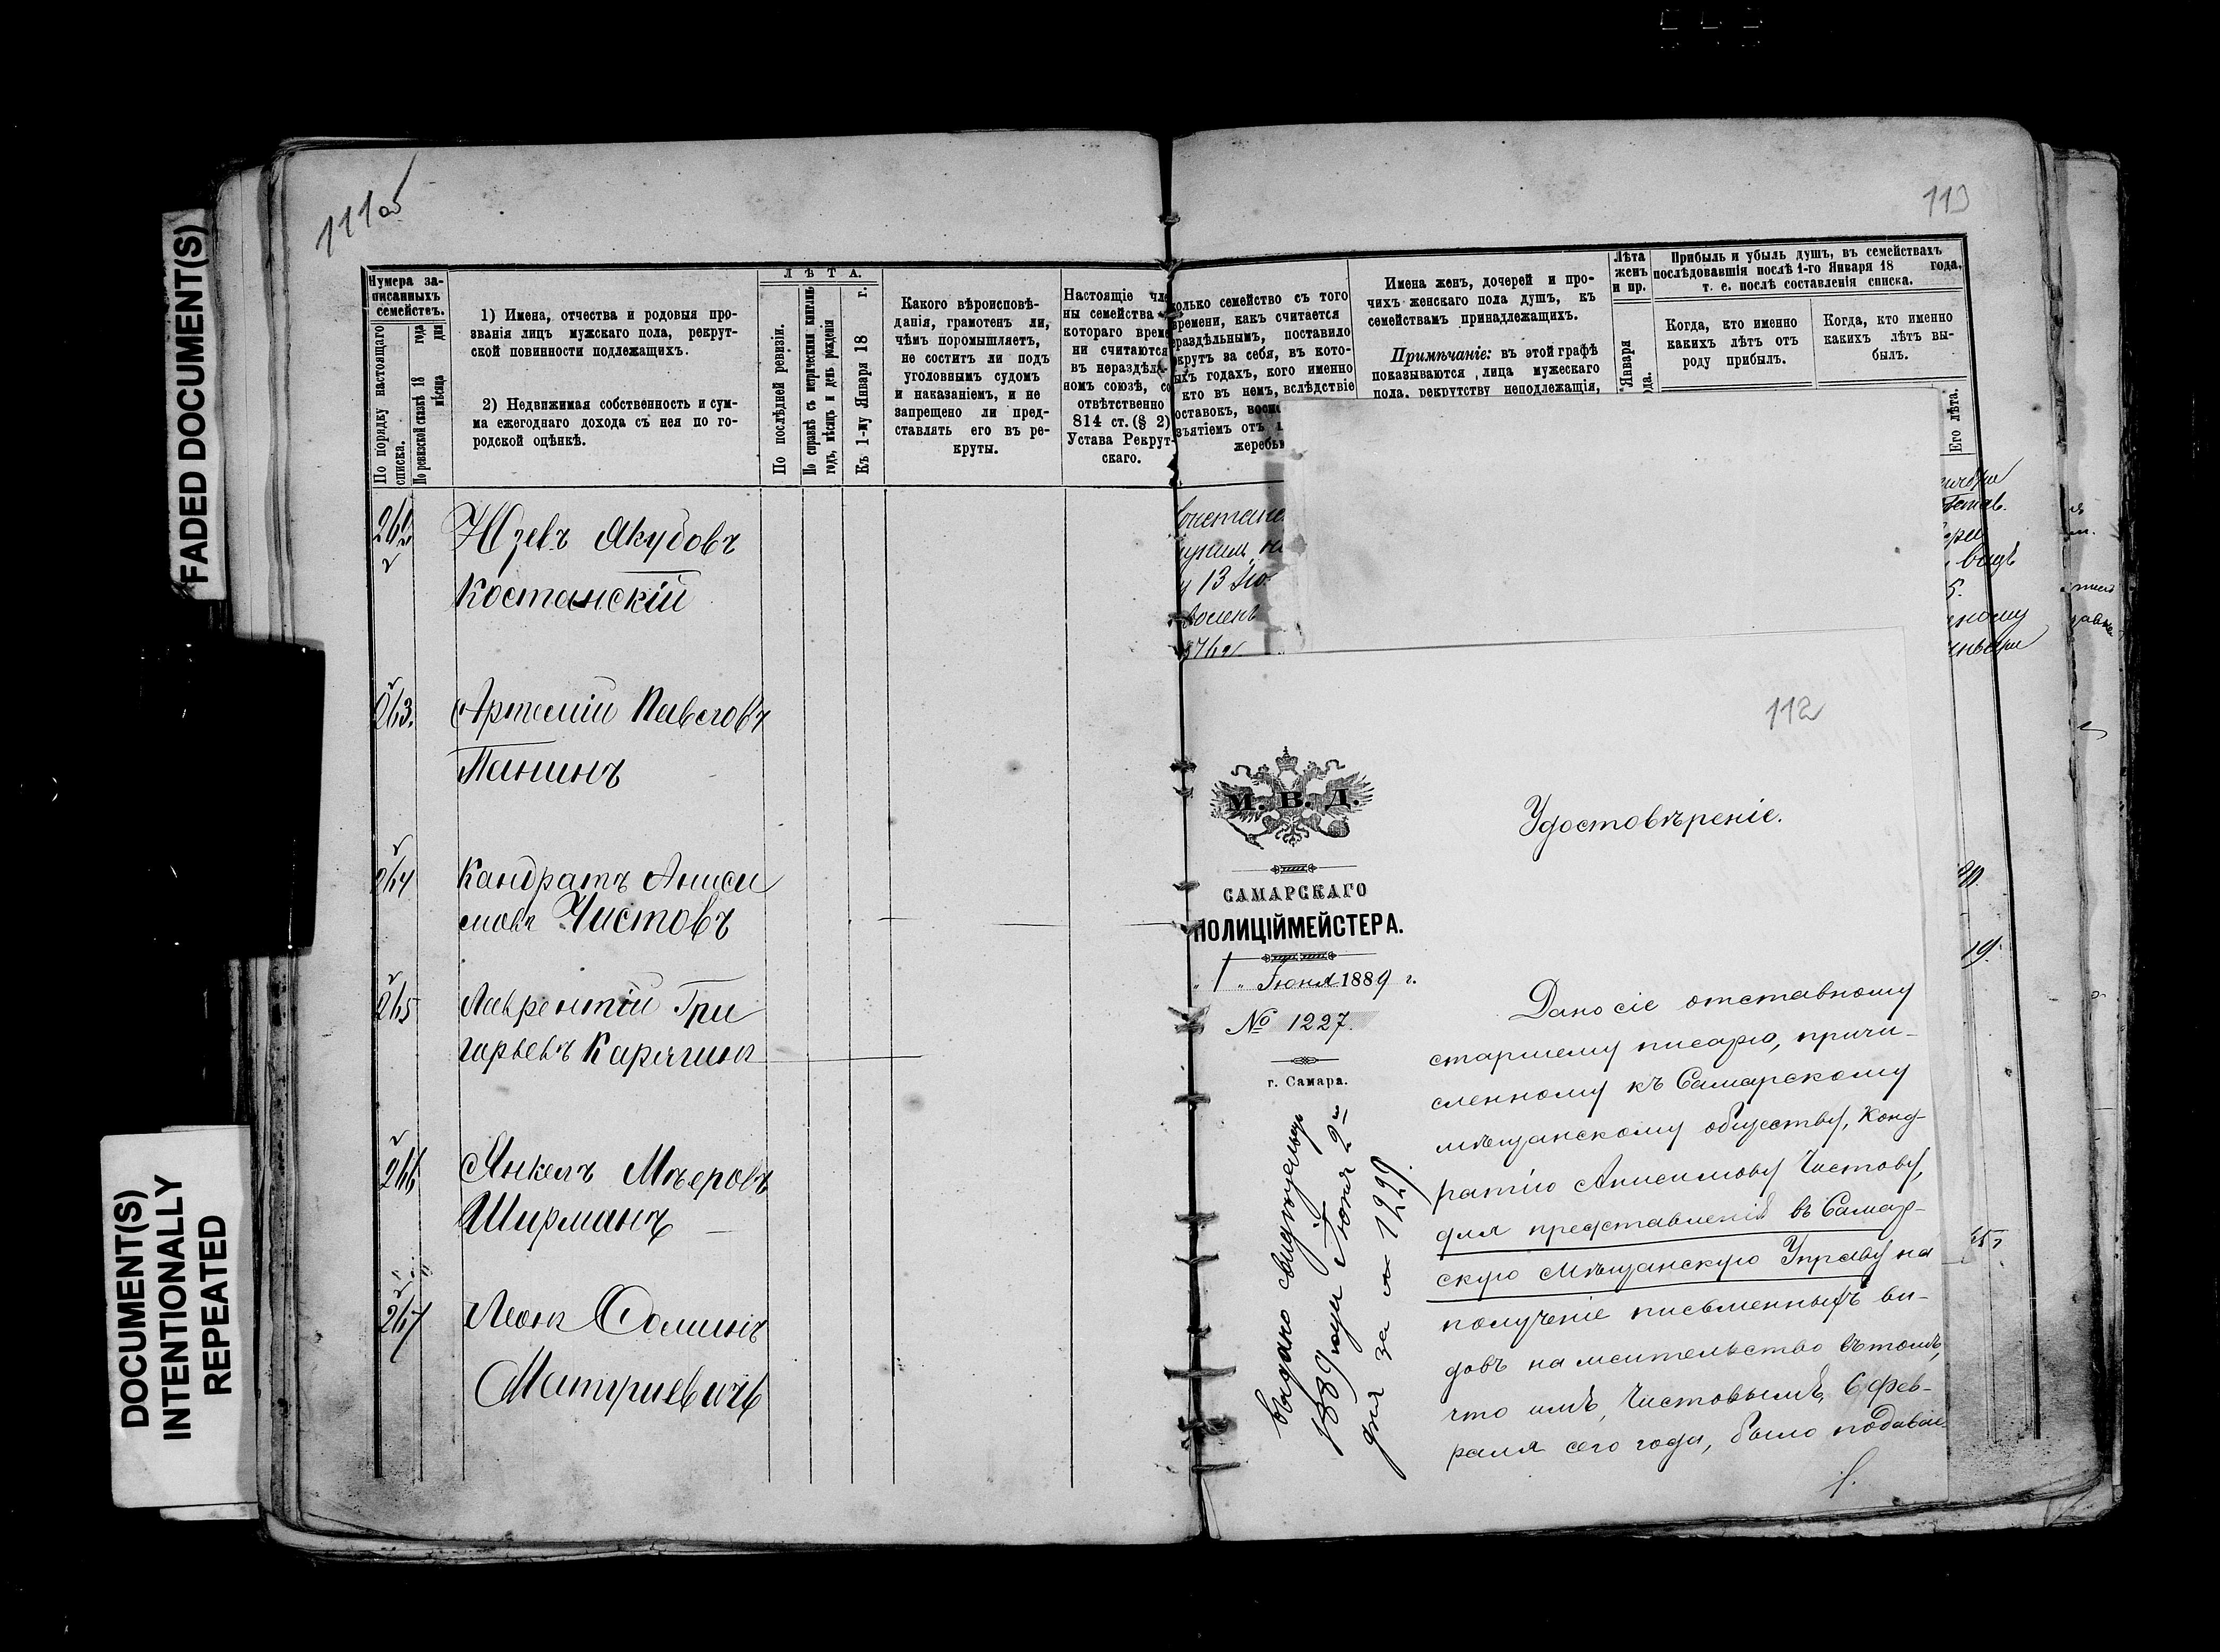 FADED DOCUMENT(S)
DOCUMENT(S)
INTENTIONALLY
REPEATED
111об
Нумера за-
писанныхъ
семействъ.
По порядку настоящаго
списка.
По ревизской сказкѣ 18 года
мѣсяца дня
1) Имена, отчества и родовыя про-
званія лицъ мужскаго пола, рекрут-
ской повинности подлежащихъ.
2) Недвижимая собственность и сум-
ма ежегоднаго дохода съ нея по го-
родской оцѣнкѣ.
Л Ѣ Т А.
По послѣдней ревизіи.
По справкѣ съ метрическими книгами
годъ, мѣсяцъ и день рожденія
Къ 1-му Января 18 г.
Какого вѣроисповѣ-
данія, грамотенъ ли,
чѣмъ поромышляетъ,
не соститъ ли подъ
уголовнымъ судомъ
и наказаніемъ, и не
запрещено ли пред-
ставлять его въ ре-
круты.
Настоящіе чле
ны семейства
котораго време
ни считаются
въ нераздѣль
номъ союзѣ, со
отвѣтственно
814 ст. (§ 2)
Устава Рекрут-
скаго.
262
Юзевъ Якубовъ
Костанскій
263.
Артемій Павловъ
Панинъ
264
Кандратъ Аниси
мовъ Чистовъ
265
Лаврентій Гри
горьевъ Карягинъ
266
Янкель Мѣеровъ
Ширманъ
267
Леонъ Осминъ
Матушевичъ
113
олько семейство съ того
времени, какъ считается
раздѣльнымъ, поставило
крутъ за себя, въ кото-
ыхъ годахъ, кого именно
кто въ немъ, вслѣдствіе
оставокъ,
зъятіемъ отъ
жеребь
Имена женъ, дочерей и про-
чихъ женскаго пола душъ, къ
семействамъ принадлежащихъ.
Примѣчаніе: въ этой графѣ
показываются лица мужескаго
пола, рекрутству неподлежащія,
Лѣта
женъ
и пр.
Января
Прибыль и убыль душъ, въ семействахъ
послѣдовавшія послѣ 1-го Января 18 года,
т. е. послѣ составленія списка.
Когда, кто именно
какихъ лѣтъ отъ
роду прибылъ.
Когда, кто именно
какихъ лѣтъ вы-
былъ.
Его лѣта.
112
М. В. Д.
САМАРСКАГО
ПОЛИЦІЙМЕЙСТЕРА.
„ 1 „ Іюня 1889 г.
№ 1227.
г. Самара.
Удостовѣреніе.
Дано сіе отставному
старшему писарю, причи-
сленному къ Самарскому
мѣщанскому обществу, Конд-
ратію Анисимову Чистову,
для представленія въ Самар-
скую Мѣщанскую Управу на
полученіе письменныхъ ви-
довъ на жительство въ томъ,
что имъ, Чистовымъ, 6 фев-
раля сего года, было подавае
Выдано
1889 года Іюня 2го
дня за № 1229.
19.